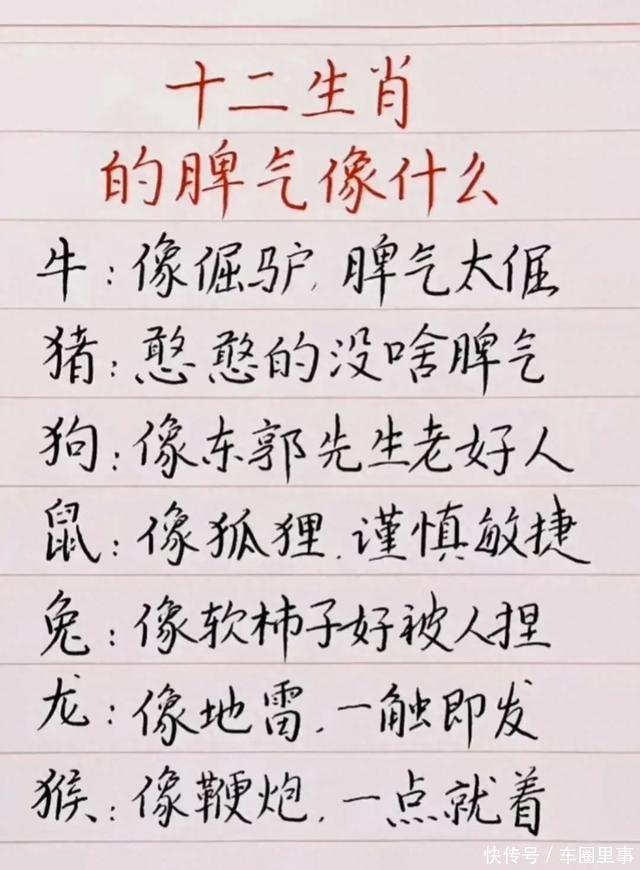 十二生肖
的脾气像什么
牛：像倔驴，脾气太倔
猪：憨憨的没啥脾气
狗：像东郭先生老好人
鼠：像狐狸，谨慎敏捷
兔：像软柿子好被人捏
龙：像地雷，一触即发
猴：像鞭炮，一点就着
快传号／车圈里事